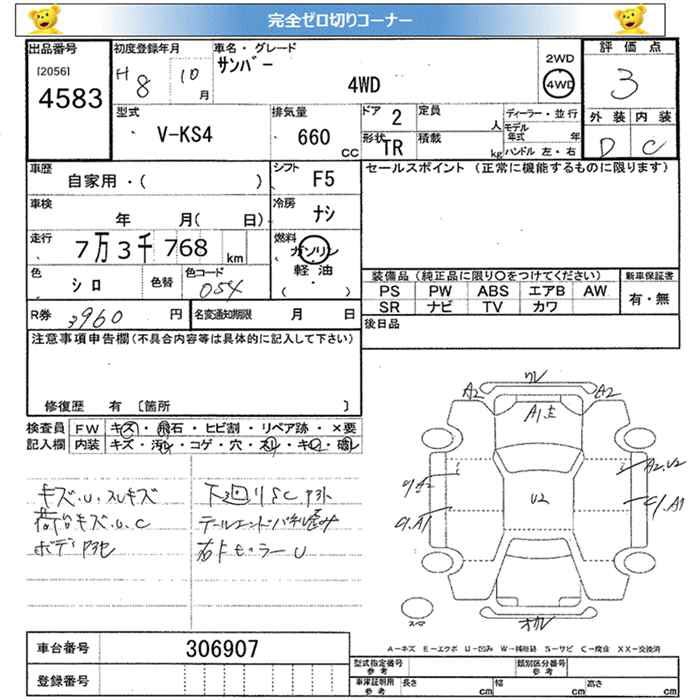 完全ゼロ切りコーナー
出品番号 初度登録年月 車名・グレード 評価点
[2056] H8 10月 サンバー 2WD
4583 4WD 4WD 3
型式 排気量 ドア 2 定員 人 ディーラー・並行 外装 内装
V-KS4 660 CC 形状 TR 積載 kg モデル年式 年 D C
ハンドル 左・右
車歴 自家用・( ) シフト F5 セールスポイント (正常に機能するものに限ります)
車検 年 月( 日) 冷房 ナシ
走行 7万3千768 km 燃料 ガソリン
軽油
( )
色 シロ 色替 色コード 054 装備品 (純正品に限り○をつけてください) 新車保証書
PS PW ABS エアB AW 有・無
R券 円 名変通知期限 月 日 SR ナビ TV カワ
後日品
注意事項申告欄(不具合内容等は具体的に記入して下さい)
修復歴 有 〔箇所 〕
検査員 FW キズ・飛石・ヒビ割・リペア跡・×要
記入欄 内装 キズ・汚レ・コゲ・穴・スリ・キレ・破レ
キズ.U.スレキズ
荷台キズ.U.C
下廻りSC
U
ワレ
A2 A2
A1
A2.U2
U2
C1.A1 C1.A1
スペア
A=キズ E=エクボ U=凹み W=補修跡 S=サビ C=腐食 XX=交換済
車台番号 306907
登録番号
型式指定番号 参考 類別区分番号 参考
車庫証明用 参考 長さ cm 幅 cm 高さ cm